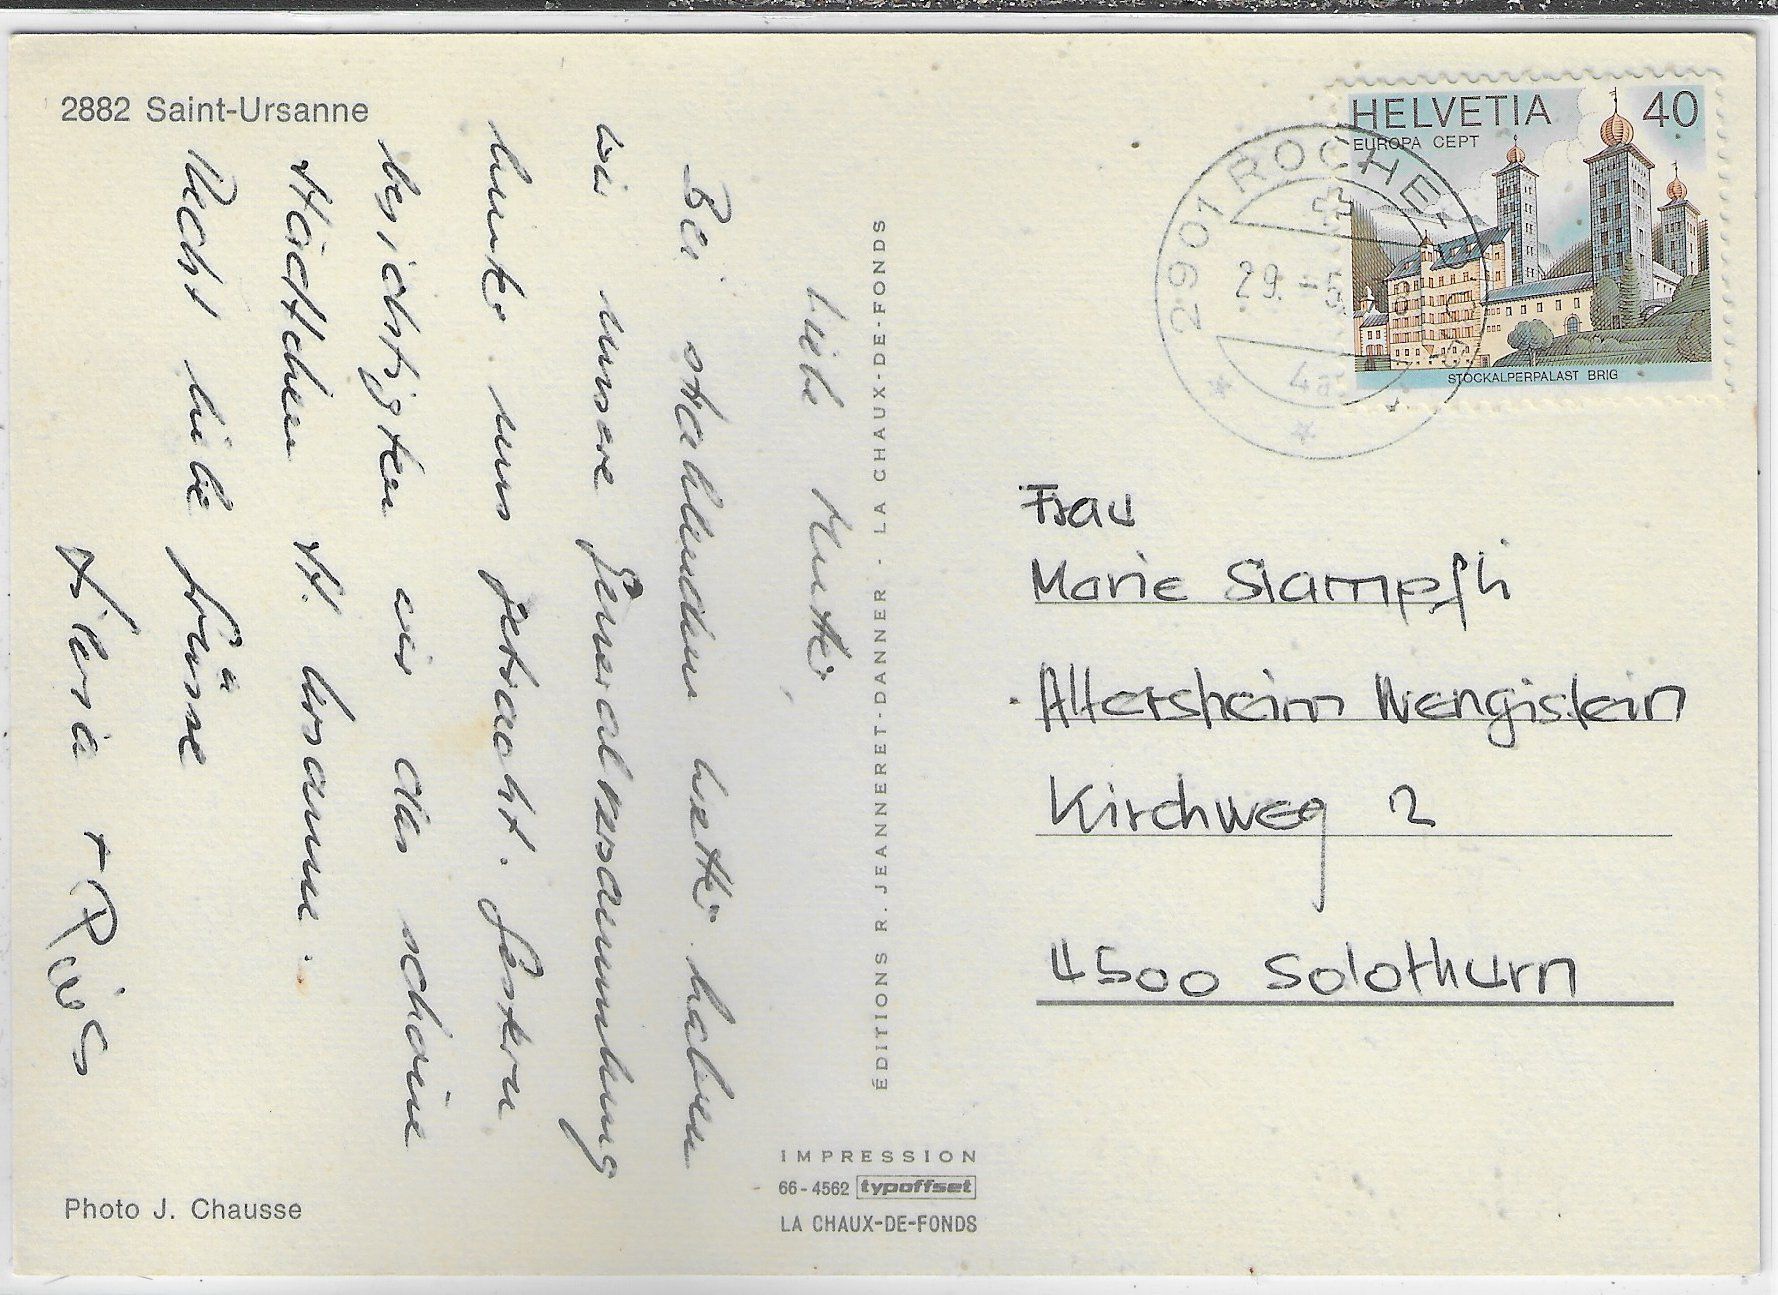 2882 Saint-Ursanne
Liebe Mutti,
Bei strahlendem Wetter haben
wir unsere Generalversammlung
hinter uns gebracht. Gestern
besichtigten wir das schöne
Städtchen St. Ursanne.
Recht liebe Grüsse
+ Pius
Photo J. Chausse
ÉDITIONS R. JEANNERET-DANNER - LA CHAUX-DE-FONDS
IMPRESSION
66-4562 typoffset
LA CHAUX-DE-FONDS
HELVETIA 40
EUROPA CEPT
STOCKALPERPALAST BRIG
2901 ROCHE
29.-5
Frau
Marie Stampfli
Altersheim Wengistein
Kirchweg 2
4500 Solothurn